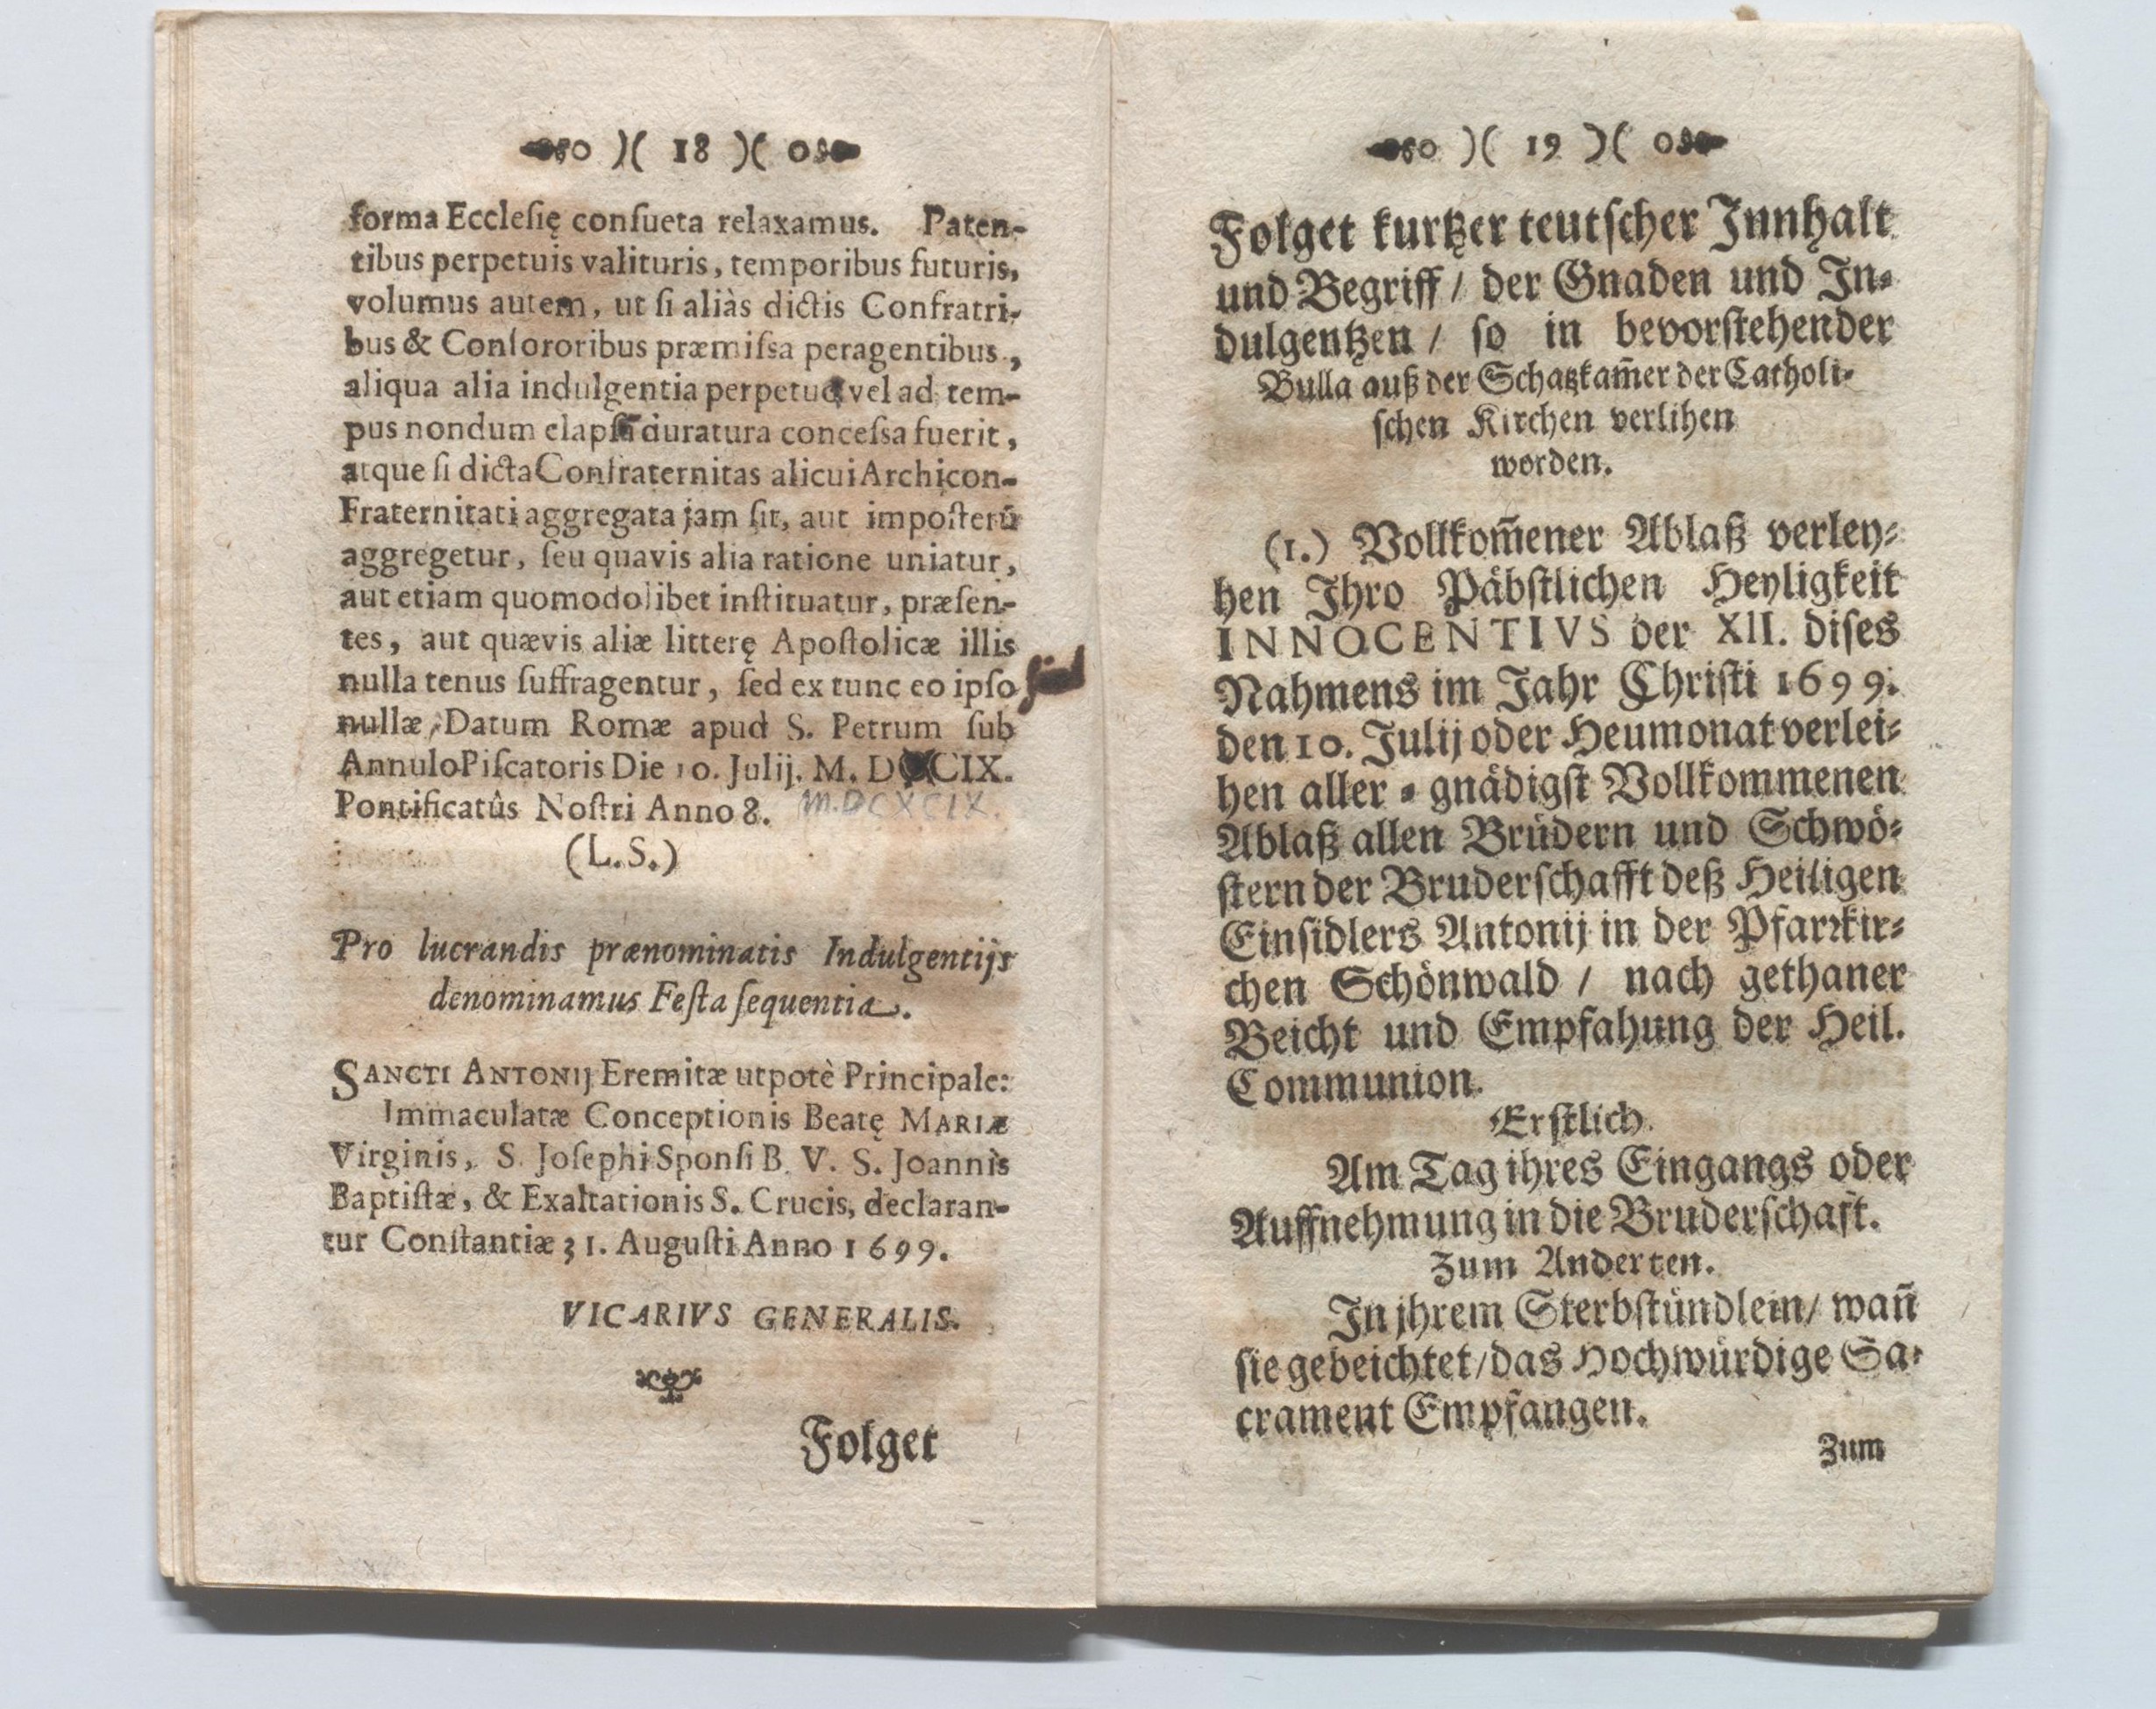 )( 18 )(
forma Ecclesię consueta relaxamus. Paten-
tibus perpetuis valituris, temporibus futuris,
volumus autem, ut si aliàs dictis Confratri-
bus & Consororibus præmissa peragentibus,
aliqua alia indulgentia perpetuo vel ad tem-
pus nondum elapsū duratura concessa fuerit,
atque si dicta Confraternitas alicui Archicon-
Fraternitati aggregata jam sit, aut imposterū
aggregetur, seu quavis alia ratione uniatur,
aut etiam quomodolibet instituatur, præsen-
tes, aut quævis aliæ litterę Apostolicæ illis
nulla tenus suffragentur, sed ex tunc eo ipso
nullæ, Datum Romæ apud S. Petrum sub
Annulo Piscatoris Die 10. Julij. M. DCXCIX.
Pontificatûs Nostri Anno 8. M.DCXCIX.
(L.S.)
Pro lucrandis prænominatis Indulgentijs
denominamus Festa sequentia.
SANCTI ANTONIJ Eremitæ utpotè Principale:
Immaculatæ Conceptionis Beatę MARIÆ
Virginis, S. Josephi Sponsi B. V. S. Joannis
Baptistæ, & Exaltationis S. Crucis, declaran-
tur Constantiæ 31. Augusti Anno 1699.
VICARIVS GENERALIS.
Folget
)( 19 )(
Folget kurtzer teutscher Innhalt
und Begriff / der Gnaden und In-
dulgentzen / so in bevorstehender
Bulla auß der Schatzkam̄er der Catholi-
schen Kirchen verlihen
worden.
(1.) Vollkom̄ener Ablaß verley-
hen Ihro Päbstlichen Heyligkeit
INNOCENTIVS der XII. dises
Nahmens im Jahr Christi 1699.
den 10. Julij oder Heumonat verlei-
hen aller-gnädigst Vollkommenen
Ablaß allen Brüdern und Schwö-
stern der Bruderschafft deß Heiligen
Einsidlers Antonij in der Pfarrkir-
chen Schönwald / nach gethaner
Beicht und Empfahung der Heil.
Communion.
Erstlich.
Am Tag ihres Eingangs oder
Auffnehmung in die Bruderschaft.
Zum Anderten.
In jhrem Sterbstündlein / wan̄
sie gebeichtet / das Hochwürdige Sa-
crament Empfangen.
Zum